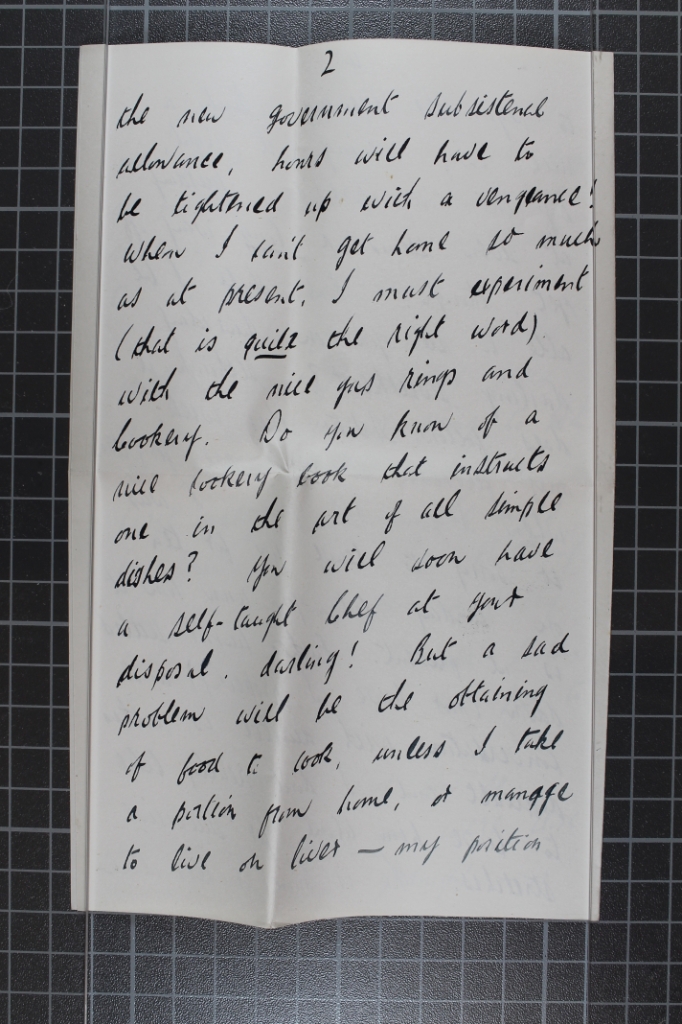 2
the new government subsistence
allowance, hours will have to
be tightened up with a vengeance!
When I can't get home so much
as at present, I must experiment
(that is quite the right word)
with the nice gas rings and
cookery. Do you know of a
nice cookery book that instructs
one in the art of all simple
dishes? You will soon have
a self-taught Chef at your
disposal, darling! But a sad
problem will be the obtaining
of food to cook, unless I take
a portion from home, or manage
to live on liver — my position